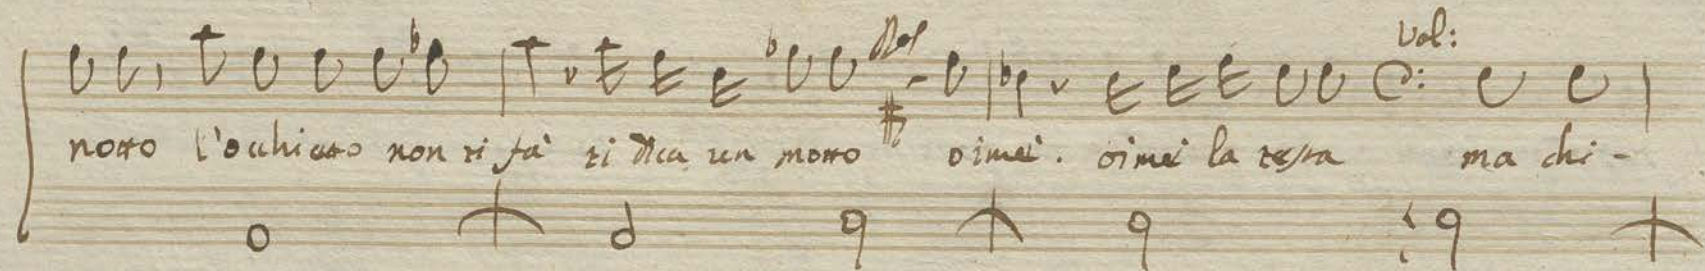 Vol:
notto l'ochiatto non ti fà ti dica un motto oimei. oimei la testa ma chi-